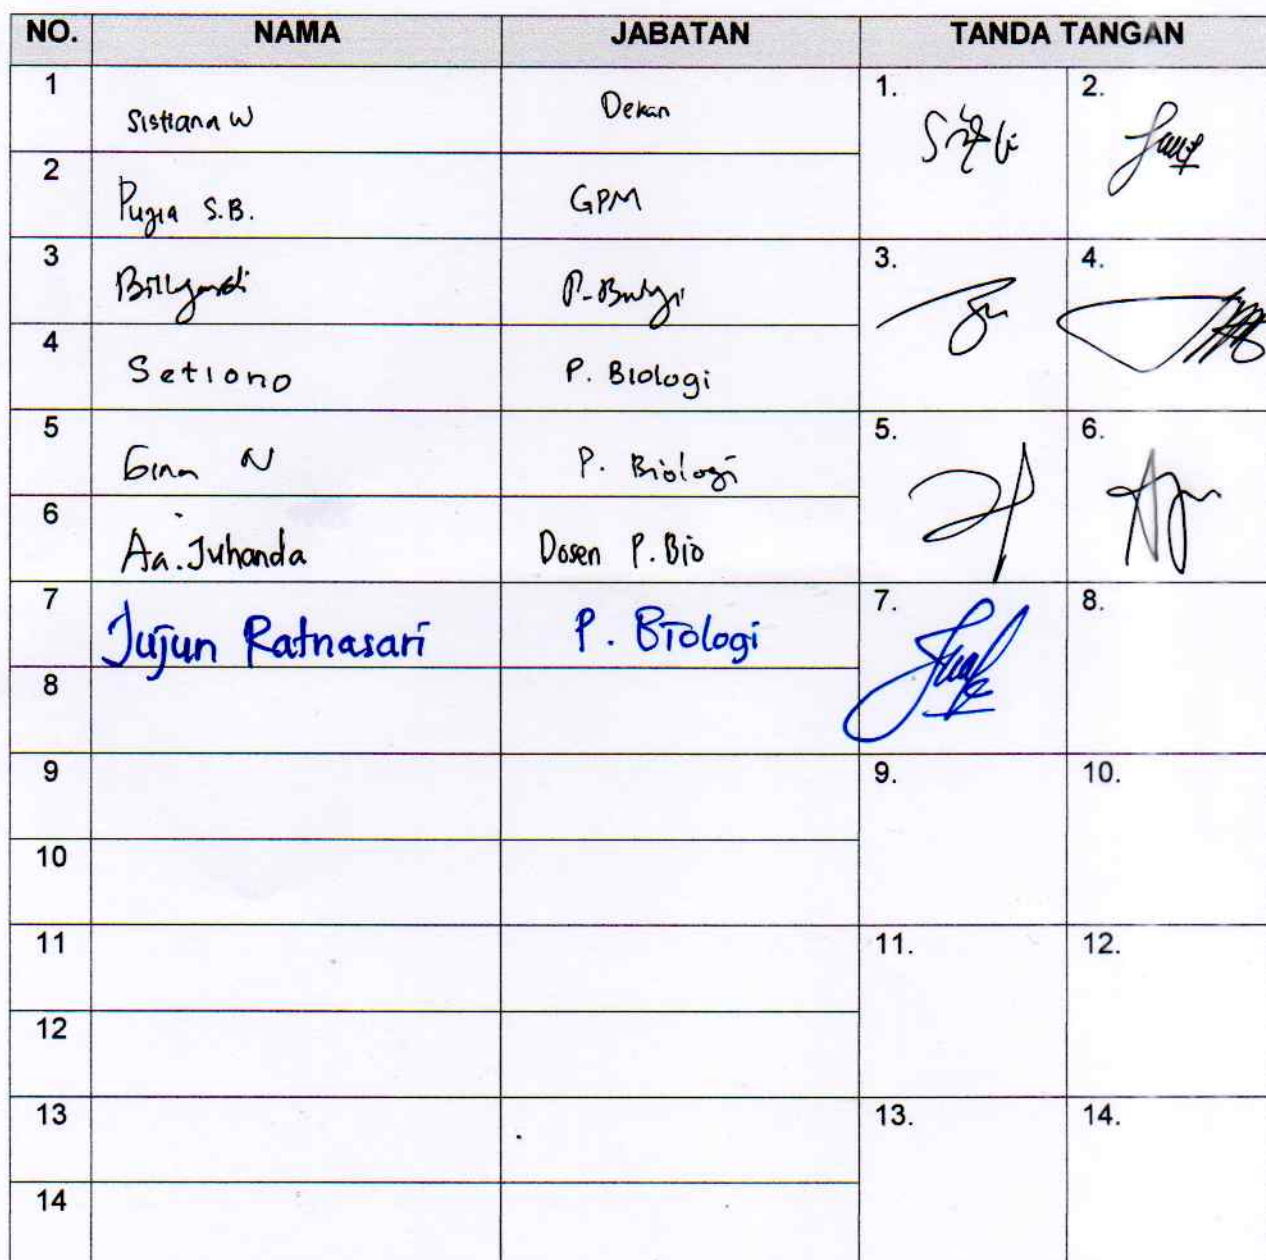 NO. NAMA JABATAN TANDA TANGAN
1 Sistiana W Dekan 1. 2.
2 Pujia S.B. GPM
3 Billyardi 3. 4.
4 Setiono P. Biologi
5 Gina N P. Biologi 5. 6.
6 Aa. Juhanda Dosen P. Bio
7 Jujun Ratnasari P. Biologi 7. 8.
8
9 9. 10.
10
11 11. 12.
12
13 13. 14.
14